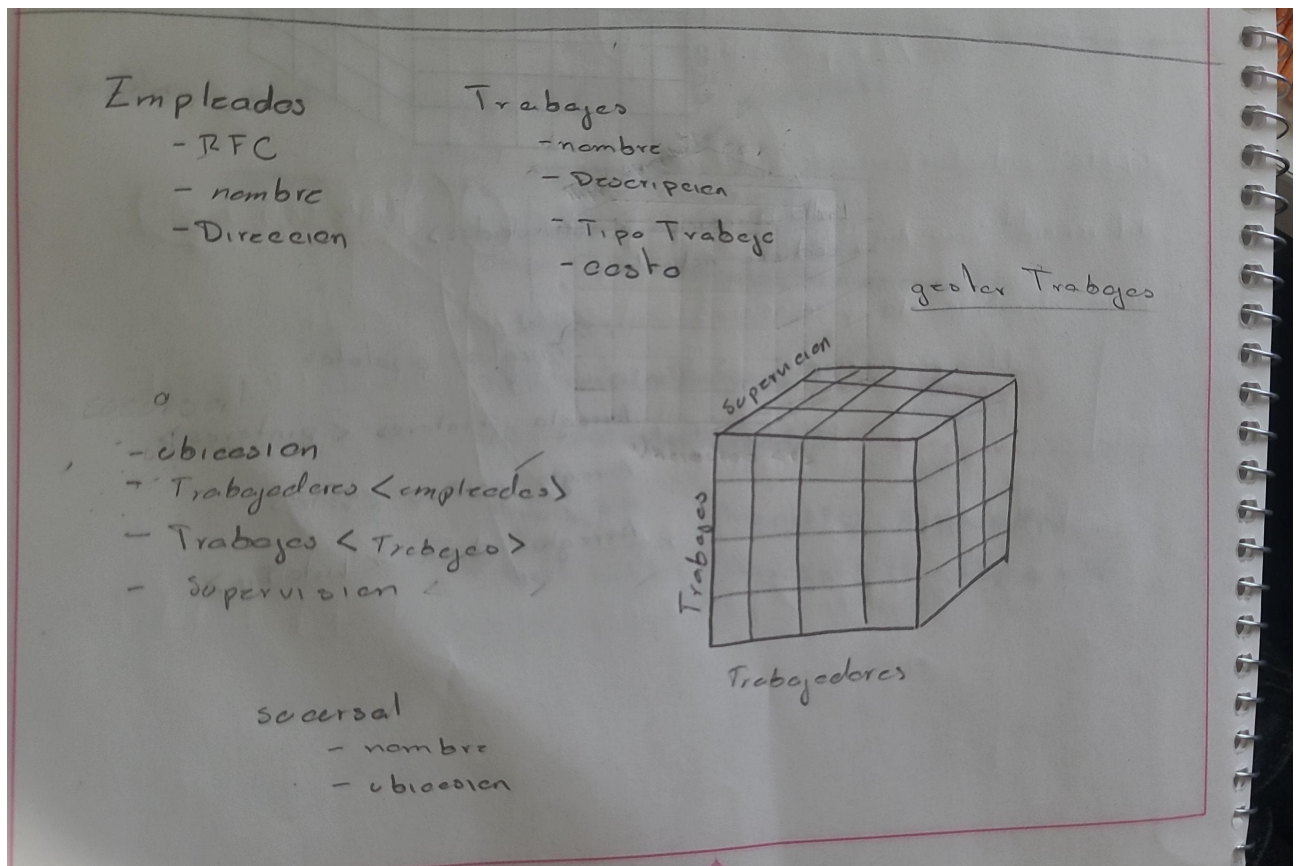 Empleados
- RFC
- nombre
- Direccion
Trabajos
- nombre
- Descripcion
- Tipo Trabajo
- costo
Trabajos
- ubicasion
- Trabajadores <empleados>
- Trabajos < Trabajos >
- Supervision < >
Supervicion
Trabajos
Trabajadores
sucursal
- nombre
- ubicasion